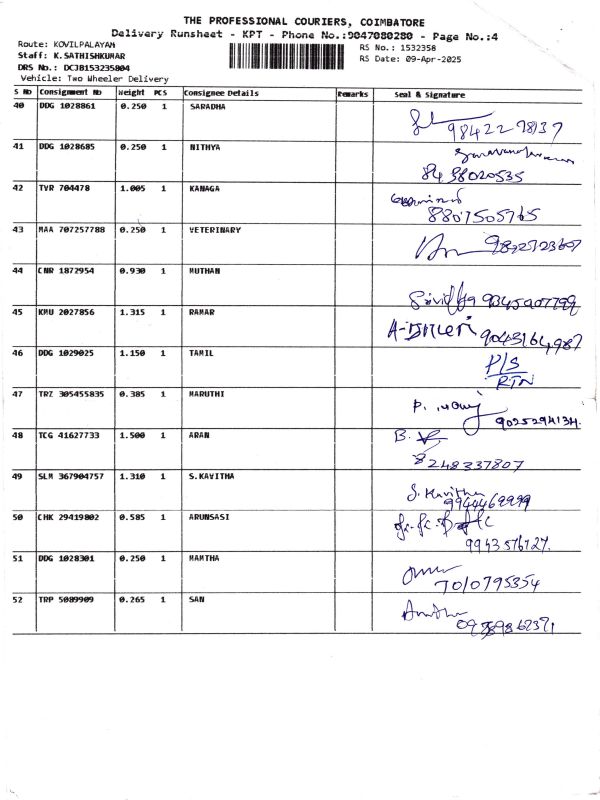 THE PROFESSIONAL COURIERS, COIMBATORE
Delivery Runsheet - KPT - Phone No.:9047080280 - Page No.:4
Route: KOVILPALAYAM
RS No.: 1532358
Staff: K.SATHISHKUMAR
RS Date: 09-Apr-2025
DRS No.: DCJB153235804
Vehicle: Two Wheeler Delivery
S No Consignment No Weight PCS Consignee Details Remarks Seal & Signature
40 DDG 1028861 0.250 1 SARADHA
41 DDG 1028685 0.250 1 NITHYA
8438020535
42 TVR 704478 1.005 1 KANAGA
8807505765
43 MAA 707257788 0.250 1 VETERINARY
44 CNR 1872954 0.930 1 MUTHAN
45 KMU 2027856 1.315 1 RAMAR
46 DDG 1029025 1.150 1 TAMIL
P/S
RTN
47 TRZ 305455835 0.385 1 MARUTHI
9025294134.
48 TCG 41627733 1.500 1 ARAN
8248337807
49 SLM 367904757 1.310 1 S.KAVITHA
S. Kavitha
9940469999
50 CHK 29419802 0.585 1 ARUNSASI
9943576727.
51 DDG 1028301 0.250 1 MAMTHA
7010795354
52 TRP 5089909 0.265 1 SAN